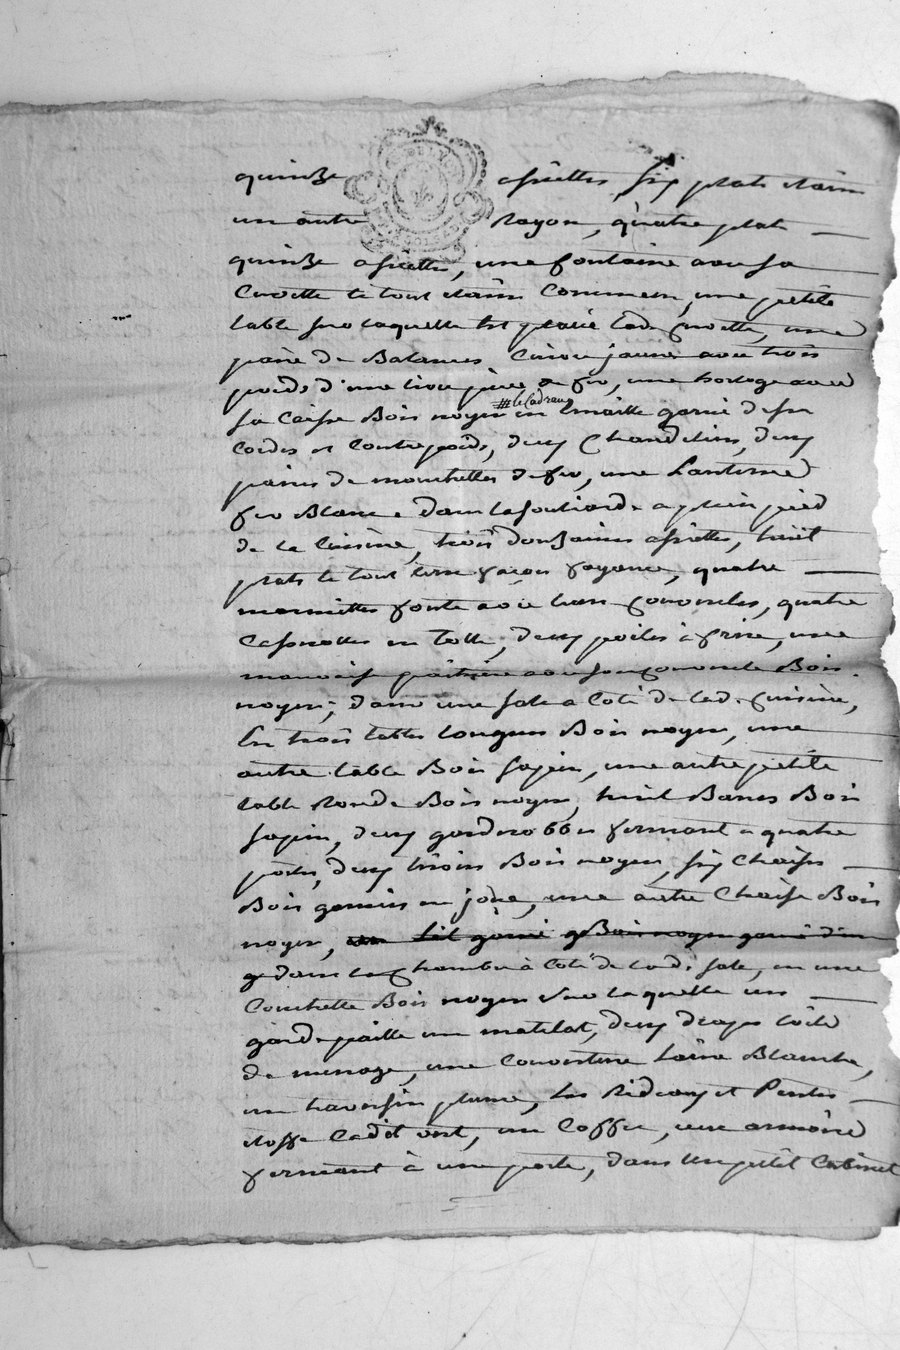 quinze assiettes six plats étaim
un autre rayon, quatre plat
quinze assiettes, une fontaine avec sa
Cuvette le tout étaim Commun, une petitte
table sur laquelle est placée lad. Cuvette, une
paire de Balances Cuivre jaune avec trois
poids d'une livre pièce de fer, une horloge avec
sa Caisse Bois noyer # le Cadran en Emaille garnie de ses
Cordes et Contrepoids, deux Chandeliers, deux
paires de mouchettes de fer, une Lanterne
fer Blanc. dans la souliarde a plein pied
de la Cuisine, trois douzaines assiettes, huit
plats le tout terre façon fayance, quatre
marmittes fonte avec leurs couvercles, quatre
Cassrolles en Tolle, deux poiles à frire, une
mauvaise paitrière avec son couvercle Bois
noyer; dans une sale a Coté de lad. Cuisine,
Est trois tables longues Bois noyer, une
autre table Bois sapin, une autre petitte
table ronde Bois noyer, huit Bancs Bois
sapin, deux garderobbes fermant a quatre
portes, deux tiroirs Bois noyer, six Chaises
Bois garnies en jonc, une autre Chaise Bois
noyer, un lit garni Bois noyer garni d'un
dans la Chambre à Coté de lad. sale, en une
Couchette Bois noyer sur laquelle un
garde paille un matelat, deux draps toile
de menage, une Couverture laine Blanche,
un traversin plume, les Rideaux et Pentes
étoffe Cadit vert, un Coffre, une armoire
fermant à une porte, dans un petit Cabinet